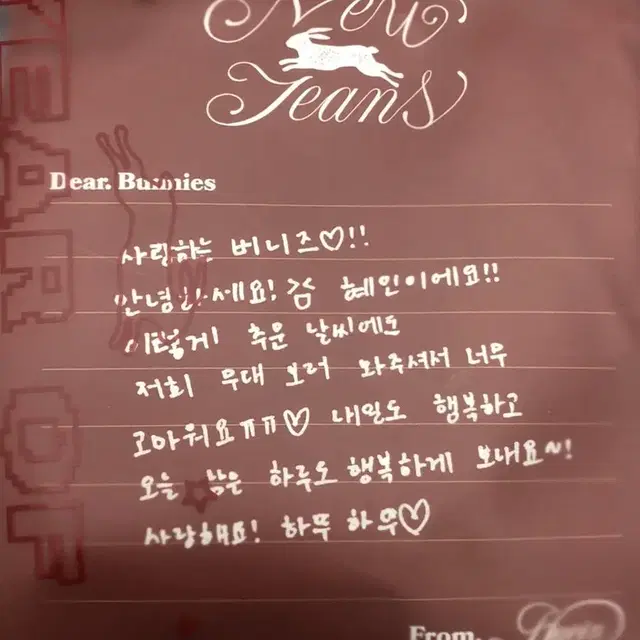 New
Jeans
Dear. Bunnies
사랑하는 버니즈♡!!
안녕하세요! 혜인이에요!!
이렇게 추운 날씨에도
저희 무대 보러 와주셔서 너무
고아워요ㅠㅠ♡ 내일도 행복하고
오늘 남은 하루도 행복하게 보내요~!
사랑해요! 하뚜 하뚜♡
From.
YEAR OF